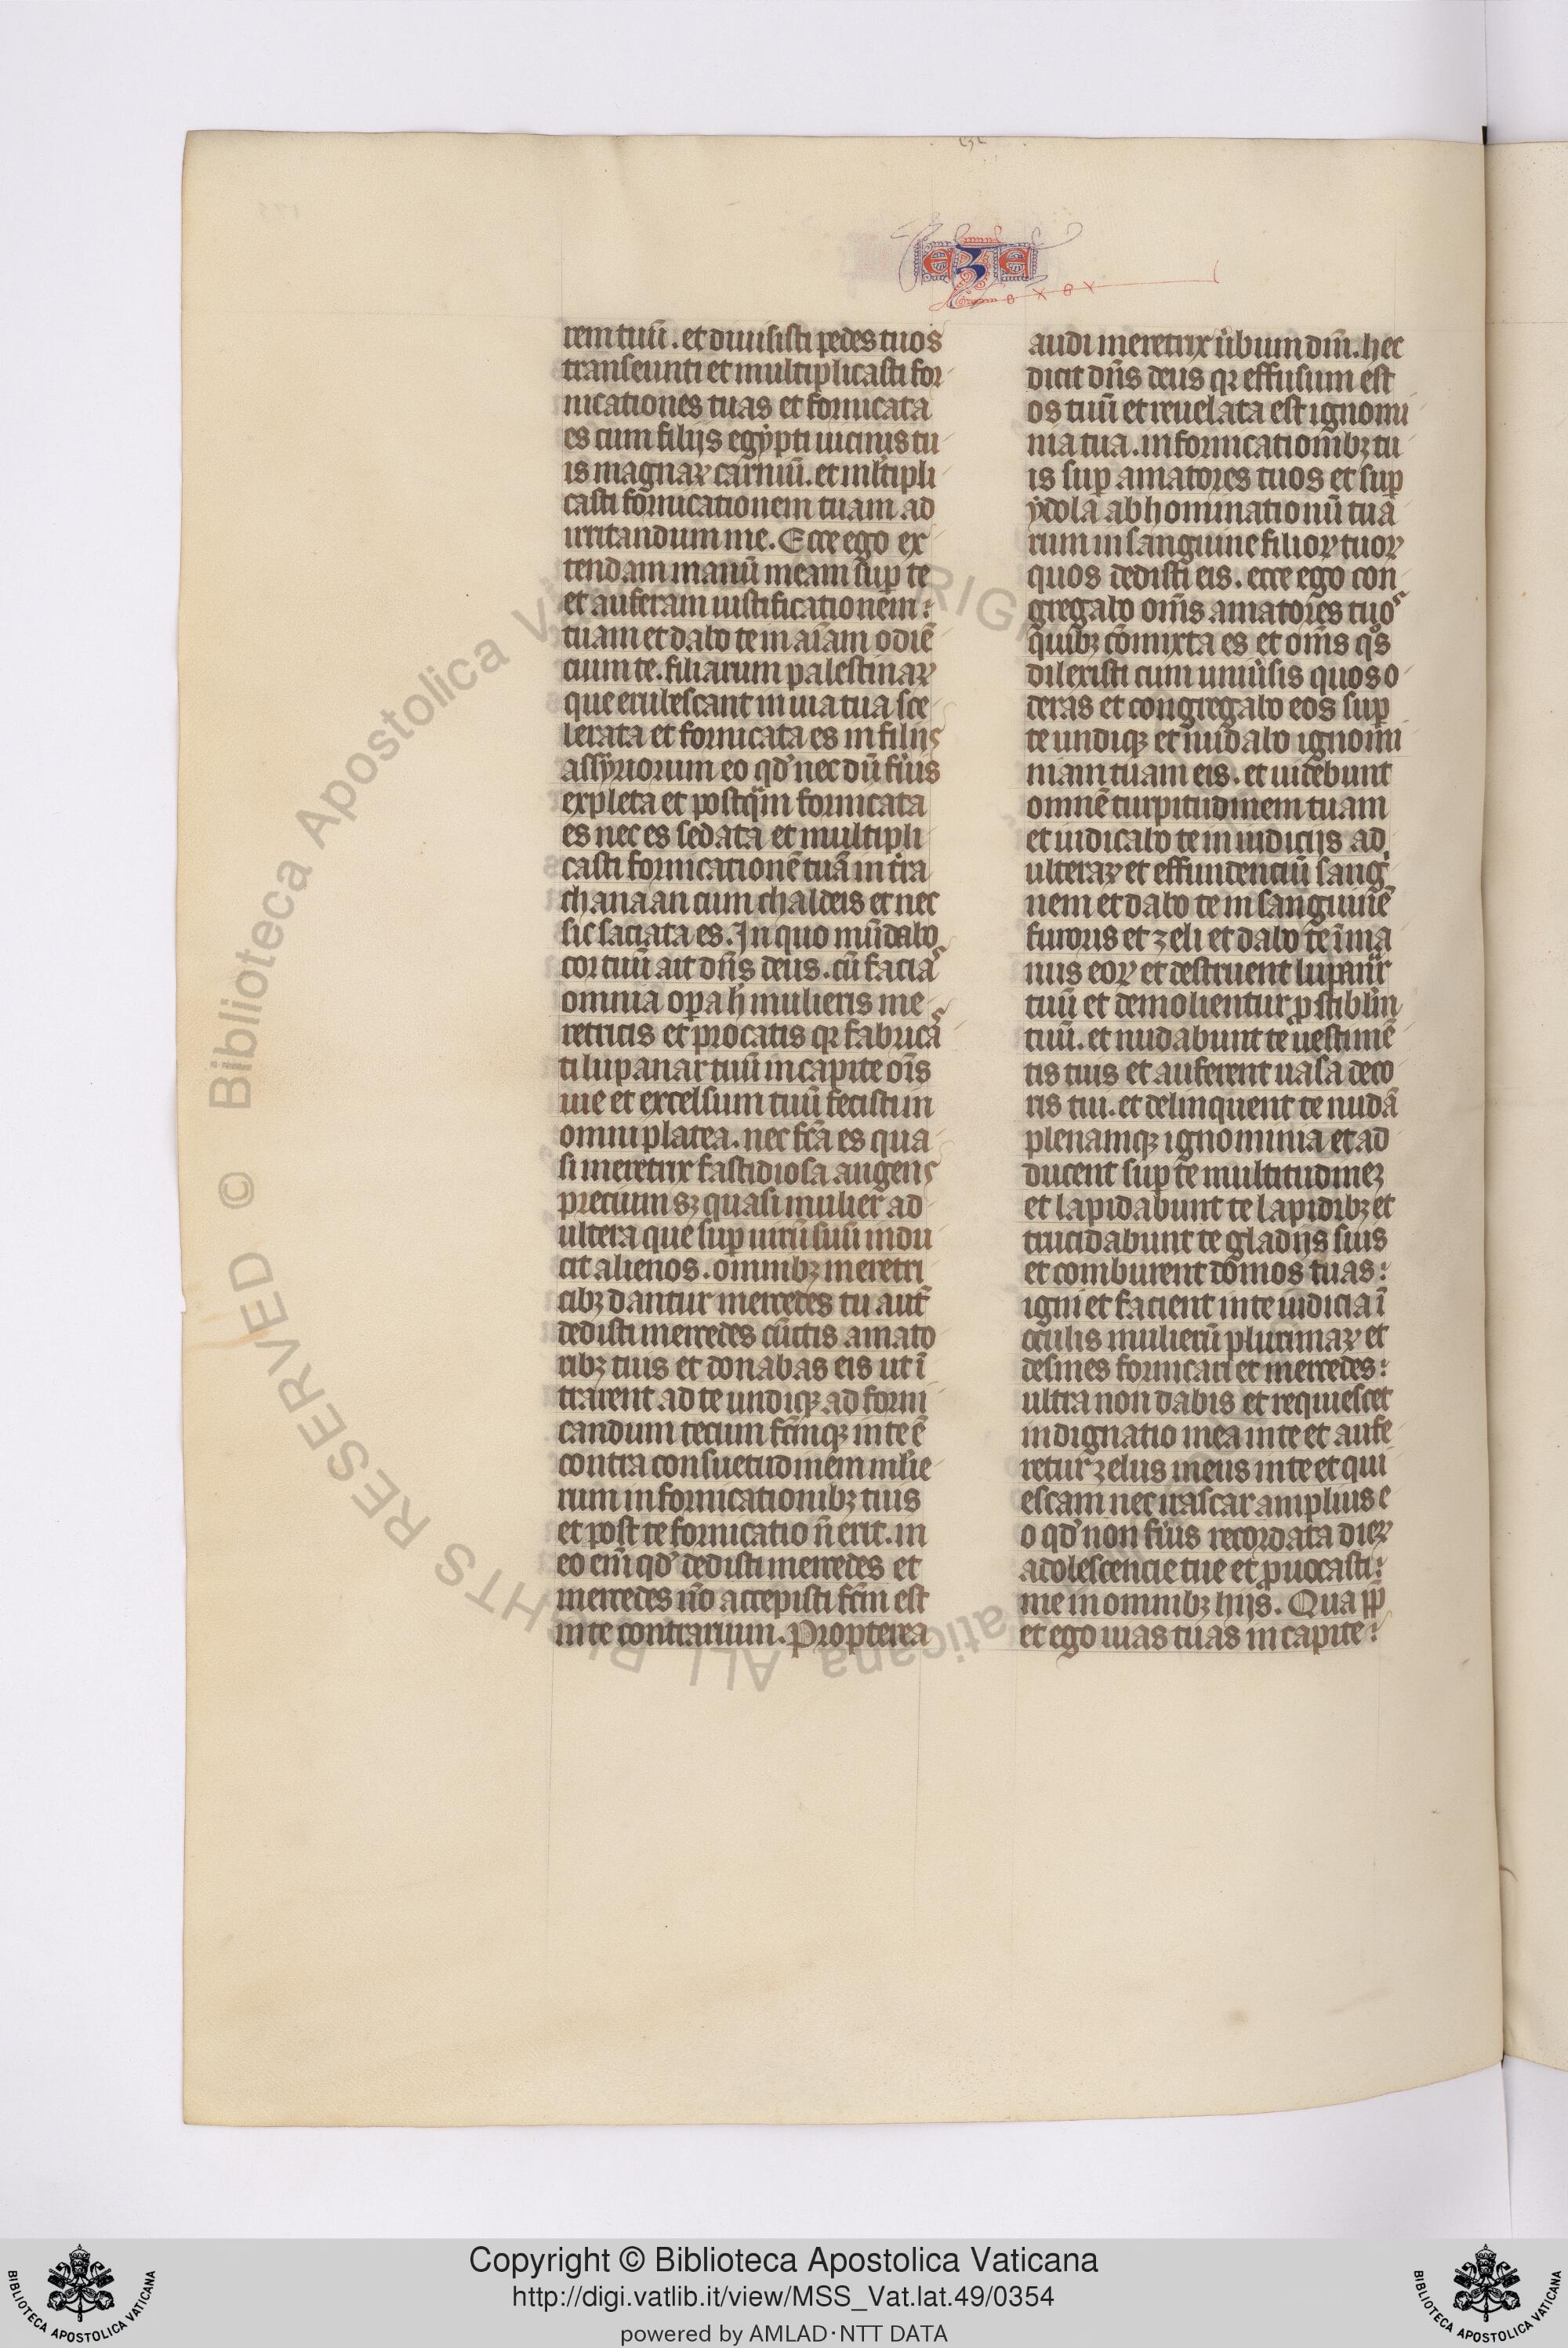 EZE
rem tuū . et diuisisti pedes tuos
transeunti et multiplicasti for
nicationes tuas et fornicata
es cum filijs egẏpti uicinis tu
is magnaꝝ carniū . et ml̄tipli
casti fornicationem tuam ad
irritandum me . Ecce ego ex
tendam manū meam suꝑ te
et auferam iustificationem :
tuam et dabo te in aīam odiē
cium te . filiarum palestinaꝝ
que erubescant in uia tua sce
lerata et fornicata es in filijs
assẏriorum eo qd' nec dū fu̾is
expleta et postq̄m fornicata
es nec es sedata et multipli
casti fornicationē tuā in t̾ra
chanaan cum chaldeis et nec
sic saciata es . In quo mūdabo
cor tuū ait dn̄s deus . cū facias
omnia oꝑa h̄ mulieris me
retricis et procatis qꝛ fabricas
ti lupanar tuū in capite oīs
uie et excelsum tuū fecisti in
omni platea . nec fc̄a es qua
si meretrix fastidiosa augens
precium sꝫ quasi mulier ad
ultera que suꝑ uirū suū indu
cit alienos . omnibꝫ meretri
cibꝫ dantur mercedes tu aut̄
dedisti mercedes cūctis amato
ribꝫ tuis et donabas eis ut ī
trarent ad te undiqꝫ ad forni
candum tecum fc̄mqꝫ in te ē
contra consuetudinem ml̄ie
rum in fornicationibꝫ tuis
et post te fornicatio n̄ erit . in
eo em̄ qd' dedisti mercedes et
mercedes nō accepisti fc̄m est
in te contrarium . Propterea
audi meretrix u̾bum dn̄i . hec
dicit dn̄s deus qꝛ effusum est
os tuū et reuelata est ignomi
nia tua . in fornicationibꝫ tu
is suꝑ amatores tuos et suꝑ
ẏdola abhominationū tua
rum in sanguine filioꝝ tuoꝝ
quos dedisti eis . ecce ego con
gregabo om̄s amatores tuos
quibꝫ cōmixta es et om̄s qͦs
dilexisti cum uniu̾sis quos o
deras et congregabo eos suꝑ
te undiqꝫ et nudabo ignomi
niam tuam eis . et uidebunt
omnē turpitudinem tuam
et iudicabo te in iudicijs ad
ulteraꝝ et effundenciū sang
nem et dabo te in sanguinē
furoris et zeli et dabo te ī ma
nus eoꝝ et destruent lupanar
tuū et demolientur ꝓstibl̄m
tuū . et nudabunt te uestimē
tis tuis et auferent uasa deco
ris tui . et delinquent te nudā
plenamqꝫ ignominia et ad
ducent suꝑ te multitudineꝫ
et lapidabunt te lapidibꝫ et
trucidabunt te gladijs suis
et comburent domos tuas :
igni et facient in te iudicia ī
oculis mulierū plurimaꝝ et
desines fornicari et mercedes :
ultra non dabis et requiescet
indignatio mea in te et aufe
retur zelus meus in te et qui
escam nec irascar amplius e
o qd' non fu̾is recordata dieꝝ
adolescencie tue et ꝓuocasti :
me in omnibꝫ hijs . Qua ꝓp̄
et ego uias tuas in capite :
© Biblioteca Apostolica Vaticana ALL RIGHTS RESERVED
Copyright © Biblioteca Apostolica Vaticana
http://digi.vatlib.it/view/MSS_Vat.lat.49/0354
powered by AMLAD·NTT DATA
BIBLIOTECA APOSTOLICA VATICANA
BIBLIOTECA APOSTOLICA VATICANA